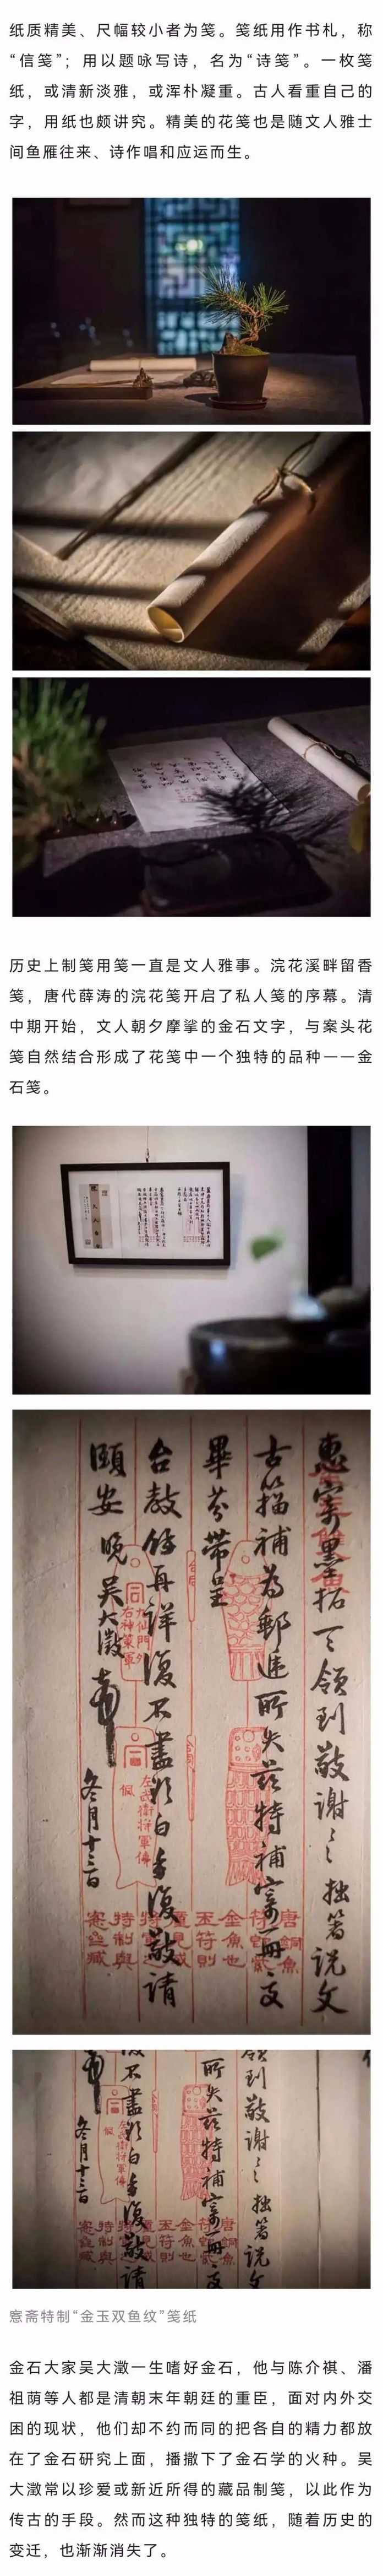 纸质精美、尺幅较小者为笺。笺纸用作书札，称
“信笺”；用以题咏写诗，名为“诗笺”。一枚笺
纸，或清新淡雅，或浑朴凝重。古人看重自己的
字，用纸也颇讲究。精美的花笺也是随文人雅士
间鱼雁往来、诗作唱和应运而生。
历史上制笺用笺一直是文人雅事。浣花溪畔留香
笺，唐代薛涛的浣花笺开启了私人笺的序幕。清
中期开始，文人朝夕摩挲的金石文字，与案头花
笺自然结合形成了花笺中一个独特的品种——金
石笺。
惠寄墨拓一一领到敬谢谢拙箸说文
古籀补为邮递所失兹特补寄一册交
畢芬带呈
台教馀再详复不盡欲白手复敬请
頤安 晚吴大澂
冬月十三日
唐銅魚
金魚也
玉符則
特制與
愙齋藏
愙斋特制“金玉双鱼纹”笺纸
金石大家吴大澂一生嗜好金石，他与陈介祺、潘
祖荫等人都是清朝末年朝廷的重臣，面对内外交
困的现状，他们却不约而同的把各自的精力都放
在了金石研究上面，播撒下了金石学的火种。吴
大澂常以珍爱或新近所得的藏品制笺，以此作为
传古的手段。然而这种独特的笺纸，随着历史的
变迁，也渐渐消失了。